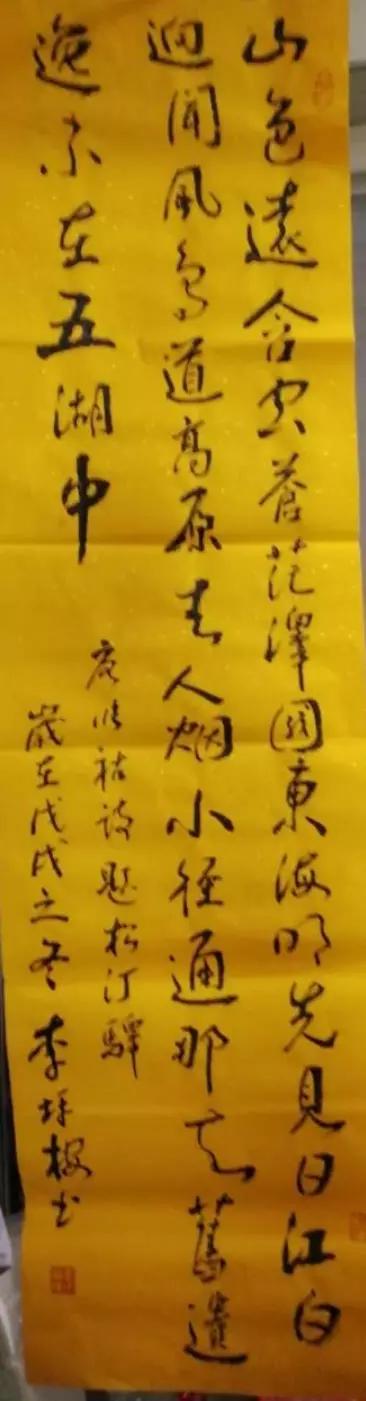 山色遠含空蒼茫澤國東海明先見日江白
迥聞風鳥道高原去人烟小徑通那知舊遺
逸不在五湖中
唐張祜詩題松汀驛
歲在戊戌之冬李书